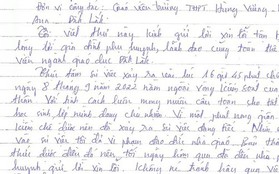 Đơn vị công tác: Giáo viên trường THPT Hùng Vương,
Ana, Đắk Lắk.
Cô viết thư này kính gửi lời xin lỗi tâm
lòng tới gia đình phụ huynh, lãnh đạo cùng toàn thể
viên ngành giáo dục Đắk Lắk.
Thưa đâm sự việc xảy ra vào lúc 16 giờ 45 phút
ngày 8 tháng 9 năm 2022 nằm ngoài vòng kiểm soát của
thân. Với bản cách luôn mong muốn cầu toàn cho tất
học sinh lớp mình đang chủ nhiệm. Vì một phút nóng giận
kiềm chế được nên đã xảy ra sự việc đáng tiếc. Nhà
vào sự việc tôi đã vi phạm đạo đức nhà giáo. Bản thân
thức được điều đó nên tôi ngày hôm qua đã đến nhà
huynh gửi lời xin lỗi. Không né tránh hậu quả